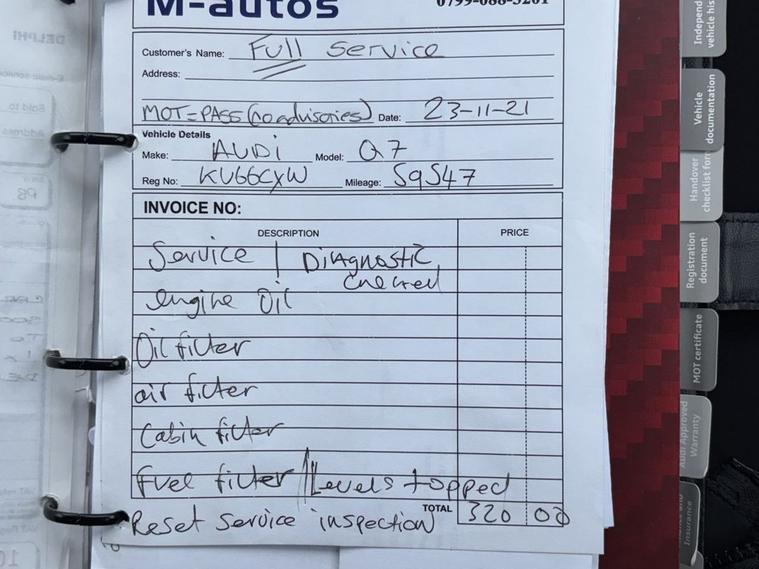 M-autos
Customer's Name: Full Service
Address:
MOT=PASS (no advisories) Date: 23-11-21
Vehicle Details
Make: AUDi Model: Q7
Reg No: KU66CXW Mileage: 59547
INVOICE NO:
DESCRIPTION PRICE
Service / Diagnostic
checked
engine Oil
Oil filter
air filter
Cabin filter
Fuel filter / Levels topped
TOTAL 320 00
Reset Service inspection
Vehicle
documentation
Handover
Registration
document
MOT certificate
Audi Approved
Warranty
Insurance
DELPHI